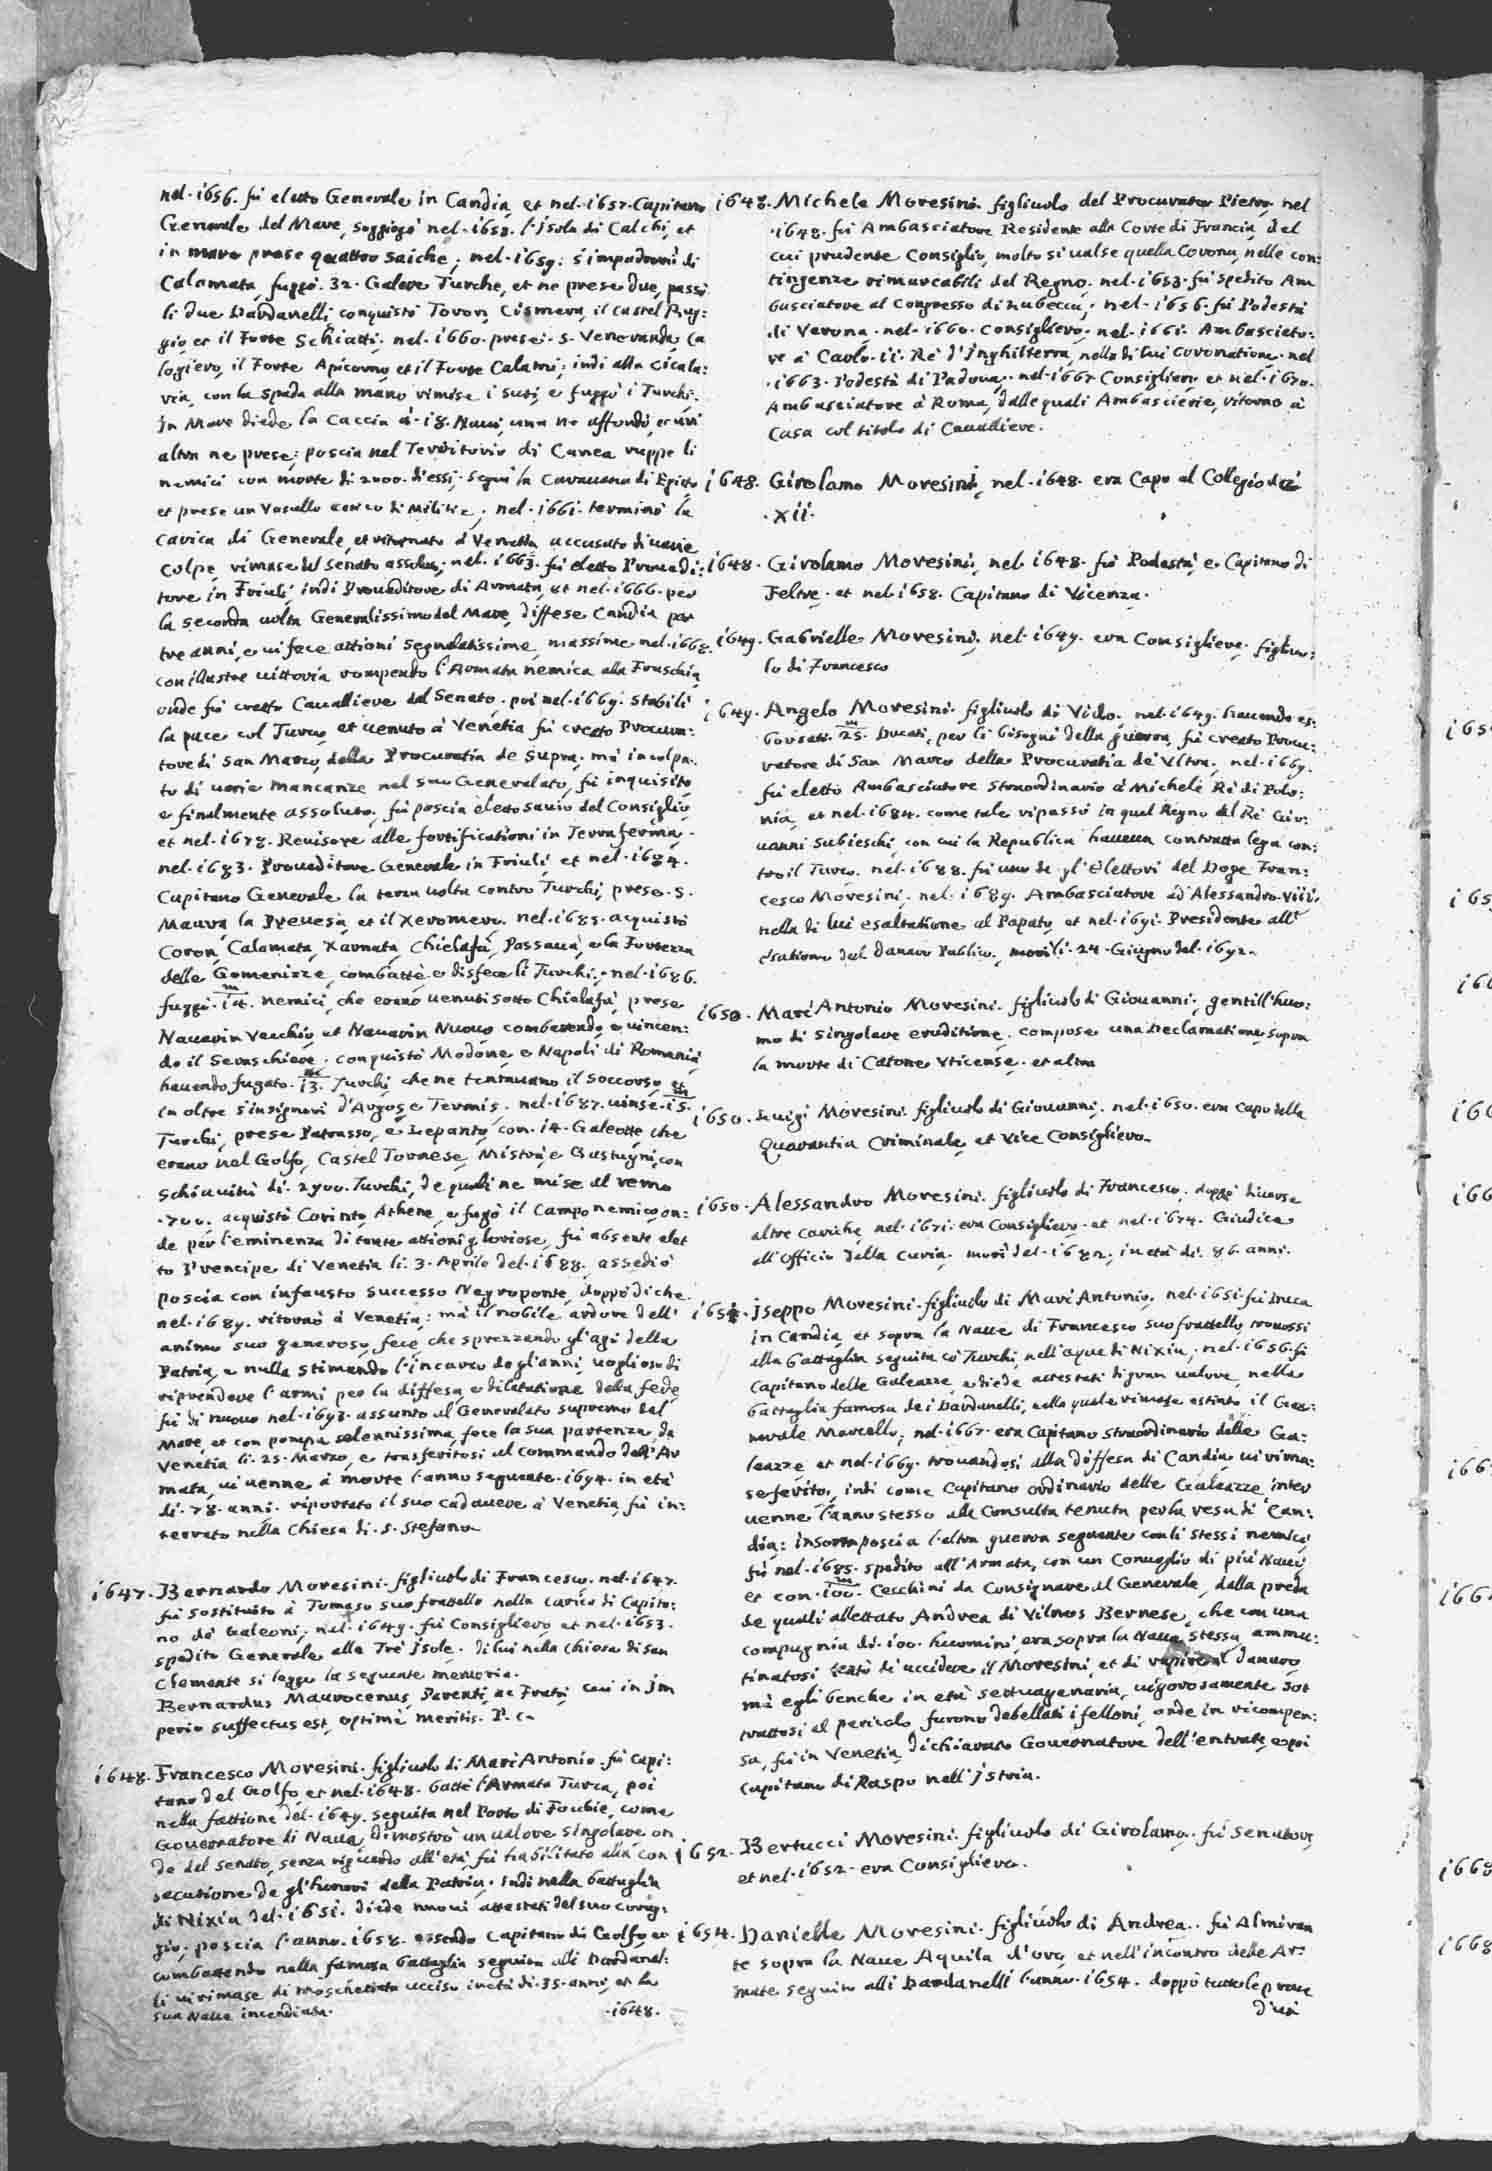 nel·1656. fù eletto Generale in Candia, et nel·1657·Capitano
Generale del Mare, soggiogò nel·1658. l'Isola di Calchi, et
in mare prese quattro saiche; nel·1659: s'impadronì di
Calamata, fuggò·32·Galere Turche, et ne prese due, passò
li due Dardanelli, conquistò Toron, Cismera, il castel Rug:
gio, et il Forte Schiatti; nel·1660·prese·S·Veneranda, Ca
logiero, il Forte Apicorno, et il Forte Calami; indi alla Cicala:
ria, con la spada alla mano rimise i suoi, e fuggò i Turchi.
In Mare diede la Caccia à·18·Naui, una ne affondò, et un'
altra ne prese; poscia nel Territorio di Canea ruppe li
nemici con morte di 2000·d'essi, seguì la Carauana di Egitto,
et prese un Vasello carico di Militie; nel·1661·terminò la
carica di Generale, et ritornato à Venetia accusato di uarie
colpe, rimase dal Senato assoluto; nel·1663·fù eletto Proueди:
tore in Friuli, indi Proueditore di Armata, et nel·1666·per
la seconda uolta Generalissimo del Mare, diffese Candia per
tre anni, e ui fece attioni segnalatissime, massime nel·1668.
con illustre uittoria rompendo l'Armata nemica alla Fraschia,
onde fù creato Caualliere dal Senato·poi nel·1669·stabilì
la pace col Turco, et uenuto à Venetia fù creato Procura:
tore di San Marco, della Procuratia de Supra; mà incolpa:
to di uarie mancanze nel suo Generalato, fù inquisito,
e finalmente assoluto, fù poscia eletto sauio del Consiglio,
et nel·1678·Reuisore alle fortificationi in Terraferma·
nel·1683·Proueditore Generale in Friuli, et nel·1684.
Capitano Generale la terza uolta contro Turchi, prese·S.
Maura, la Preuesa, et il Xeromero; nel·1685·acquistò
Coron, Calamata, Xarnata, Chielafà, Passauà, e la Fortezza
delle Gomenizze, combattè, e disfece li Turchi; nel·1686.
fuggò·14.m nemici, che erano uenuti sotto Chielafà, prese
Nauarin Vecchio, et Nauarin Nuouo combattendo, e uincen:
do il Seraschiere·conquistò Modone, e Napoli di Romania,
hauendo fugato·13.m Turchi, che ne tentauano il soccorso, et
in oltre s'insignorì d'Argos, e Termis; nel·1687·uinse·15.m
Turchi, prese Patrasso, e Lepanto, con·14·Galeotte che
erano nel Golfo, Castel Tornese, Mistra, e con
schiauitù di·2900·Turchi, de quali ne mise al remo
·700·acquistò Corinto, Athene, e fugò il Campo nemico, on:
de per l'eminenza di tante attioni gloriose, fù absente elet
to Prencipe di Venetia li·3·Aprile del·1688·assediò
poscia con infausto successo Negroponte, doppo di che
nel·1689·ritornò à Venetia; mà il nobile ardore dell'
animo suo generoso, fece, che sprezzando gl'agi della
Patria, e nulla stimando l'incarco degl'anni, uoglioso di
riprendere l'armi per la diffesa, e dilatatione della fede,
fù di nuouo nel·1693·assunto al Generalato supremo del
Mare, et con pompa solennissima, fece la sua partenza, da
Venetia li·25·Marzo, e trasferitosi al commando dell'Ar
mata, ui uenne à morte l'anno seguente·1694·in età
di·78·anni·riportato il suo cadauere à Venetia, fù in:
terrato nella Chiesa di·S·Stefano
1647·Bernardo Moresini·figliuolo di Francesco·nel·1647·
fù sostituito à Tomaso suo fratello nella carica di Capita:
no de Galeoni; nel·1649·fù Consigliero, et nel·1653·
spedito Generale alle Trè Isole·di lui nella Chiesa di san
Clemente si legge la seguente memoria·
Bernardus Maurocenus, Parenti, ac Fratri, cui in Im
perio suffectus est, optimè meritis·P·C·
1648·Francesco Moresini·figliuolo di Marc'Antonio·fù Capi:
tano del Golfo, et nel·1648·battè l'Armata Turca, poi
nella fattione del·1649·seguita nel Porto di Fochie, come
Gouernatore di Naue, dimostrò un ualore singolare, on
de dal Senato, senza riguardo all'età, fù habilitato alla con
secutione de gl'honori della Patria·Indi nella battaglia
di Nixia del·1651·diede nuoui attestati del suo corag:
gio; poscia l'anno·1658·essendo Capitano di Golfo, et
combattendo nella famosa battaglia seguita alli Dardanel:
li, ui rimase di moschettata ucciso in età di·35·anni, et la
sua Naue incendiata·
·1648·
1648·Michele Moresini·figliuolo del Procurator Pietro, nel
·1648·fù Ambasciatore Residente alla Corte di Francia, del
cui prudente Consiglio, molto si ualse quella Corona, nelle con:
tingenze rimarcabili del Regno·nel·1653·fù spedito Am
basciatore al Congresso di Lubecca; nel·1656·fù Podestà
di Verona·nel·1660·Consigliero; nel·1661·Ambasciato:
re à Carlo·II·Rè d'Inghilterra, nella di lui coronatione·nel
·1663·Podestà di Padoua; nel·1667·Consigliero, et nel·1670·
Ambasciatore à Roma, dalle quali Ambascierie, ritornò à
Casa col titolo di Caualliere·
1648·Girolamo Moresini, nel·1648·era Capo al Collegio dei
·XII·
1648·Girolamo Moresini, nel 1648·fù Podestà, e Capitano di
Feltre·et nel 1658·Capitano di Vicenza·
1649·Gabrielle Moresini, nel·1649·era Consigliere·figliuo:
lo di Francesco
1649·Angelo Moresini·figliuolo di Vido, nel·1649·hauendo es:
borsati·25.m Ducati, per li bisogni della guerra, fù creato Procu:
ratore di San Marco della Procuratia de Vltra, nel·1669.
fù eletto Ambasciatore straordinario à Michele Rè di Polo:
nia, et nel·1684·come tale ripassò in quel Regno al Rè Gio:
uanni Subieschi, con cui la Republica haueua contratta lega con:
tro il Turco·nel·1688·fù uno de gl'Elettori del Doge Fran:
cesco Moresini·nel·1689·Ambasciatore ad Alessandro·VIII·
nella di lui esaltatione al Papato, et nel·1691·Presidente all'
esatione del Danaro Publico, morì li·24·Giugno del·1692·
1650·Marc'Antonio Moresini·figliuolo di Giouanni, gentil'huo:
mo di singolare eruditione, compose una Declamatione, sopra
la morte di Catone Vticense·et altro
1650·Luigi Moresini·figliuolo di Giouanni·nel·1650·era Capo della
Quarantia Criminale, et Vice Consigliero·
1650·Alessandro Moresini·figliuolo di Francesco·doppo diuerse
altre cariche, nel·1671·era Consigliero·et nel·1674·Giudice
all'Officio della Curia·morì del·1682·in età di·86·anni·
1651·Iseppo Moresini·figliuolo di Marc'Antonio, nel·1651·fù Duca
in Candia, et sopra la Naue di Francesco suo fratello, trouossi
alla battaglia seguita co' Turchi, nell'aque di Nixia; nel·1656·fù
Capitano delle Galeazze, e diede attestati di gran ualore, nella
battaglia famosa dei Dardanelli, nella quale rimase estinto il Ge:
nerale Marcello; nel·1667·era Capitano straordinario delle Ga:
leazze, et nel·1669·trouandosi alla diffesa di Candia, ui rima:
se ferito, indi come Capitano ordinario delle Galeazze, inter
uenne l'anno stesso alla Consulta tenuta per la resa di Can:
dia: insorta poscia l'altra guerra seguente con li stessi nemici,
fù nel·1685·spedito all'Armata, con un Conuoglio di più Naui,
et con·100.m Cecchini da Consignare al Generale, dalla preda
de quali allettato Andrea di Vilmos Bernese, che con una
compagnia di·100·huomini, era sopra la Naue stessa, ammu:
tinatosi tentò di uccidere il Moresini, et di rapire il danaro,
mà egli benche in età settuagenaria, uigorosamente sot
trattosi al pericolo furono debellati i felloni, onde in ricompen:
sa, fù in Venetia, dichiarato Gouernatore dell'entrate, e poi
Capitano di Raspo nell'Istria·
1652·Bertucci Moresini·figliuolo di Girolamo·fù senatore,
et nel·1652·era Consigliero·
1654·Danielle Moresini·figliuolo di Andrea·fù Almiran
te sopra la Naue Aquila d'oro, et nell'incontro delle Ar:
mate seguito alli Dardanelli l'anno·1654·doppo tutte le proue
d'un